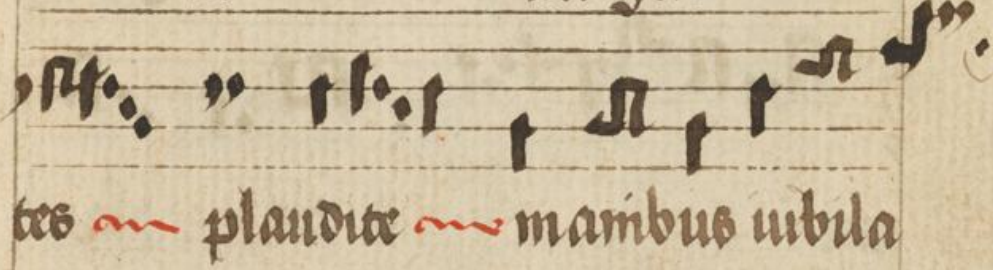 tes plaudite manibus iubila